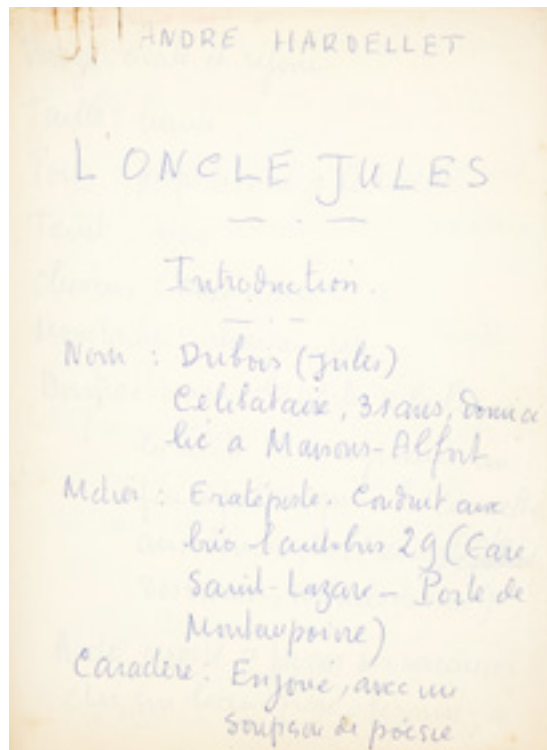 ANDRE HARDELLET
L'ONCLE JULES
Introduction.
Nom : Dubois (Jules)
Célibataire, 31 ans, domici
lié à Maisons-Alfort
Métier : Eratépiste. Conduit avec
brio l'autobus 29 (Gare
Saint-Lazare – Porte de
Montempoivre)
Caractère : Enjoué, avec un
soupçon de poésie